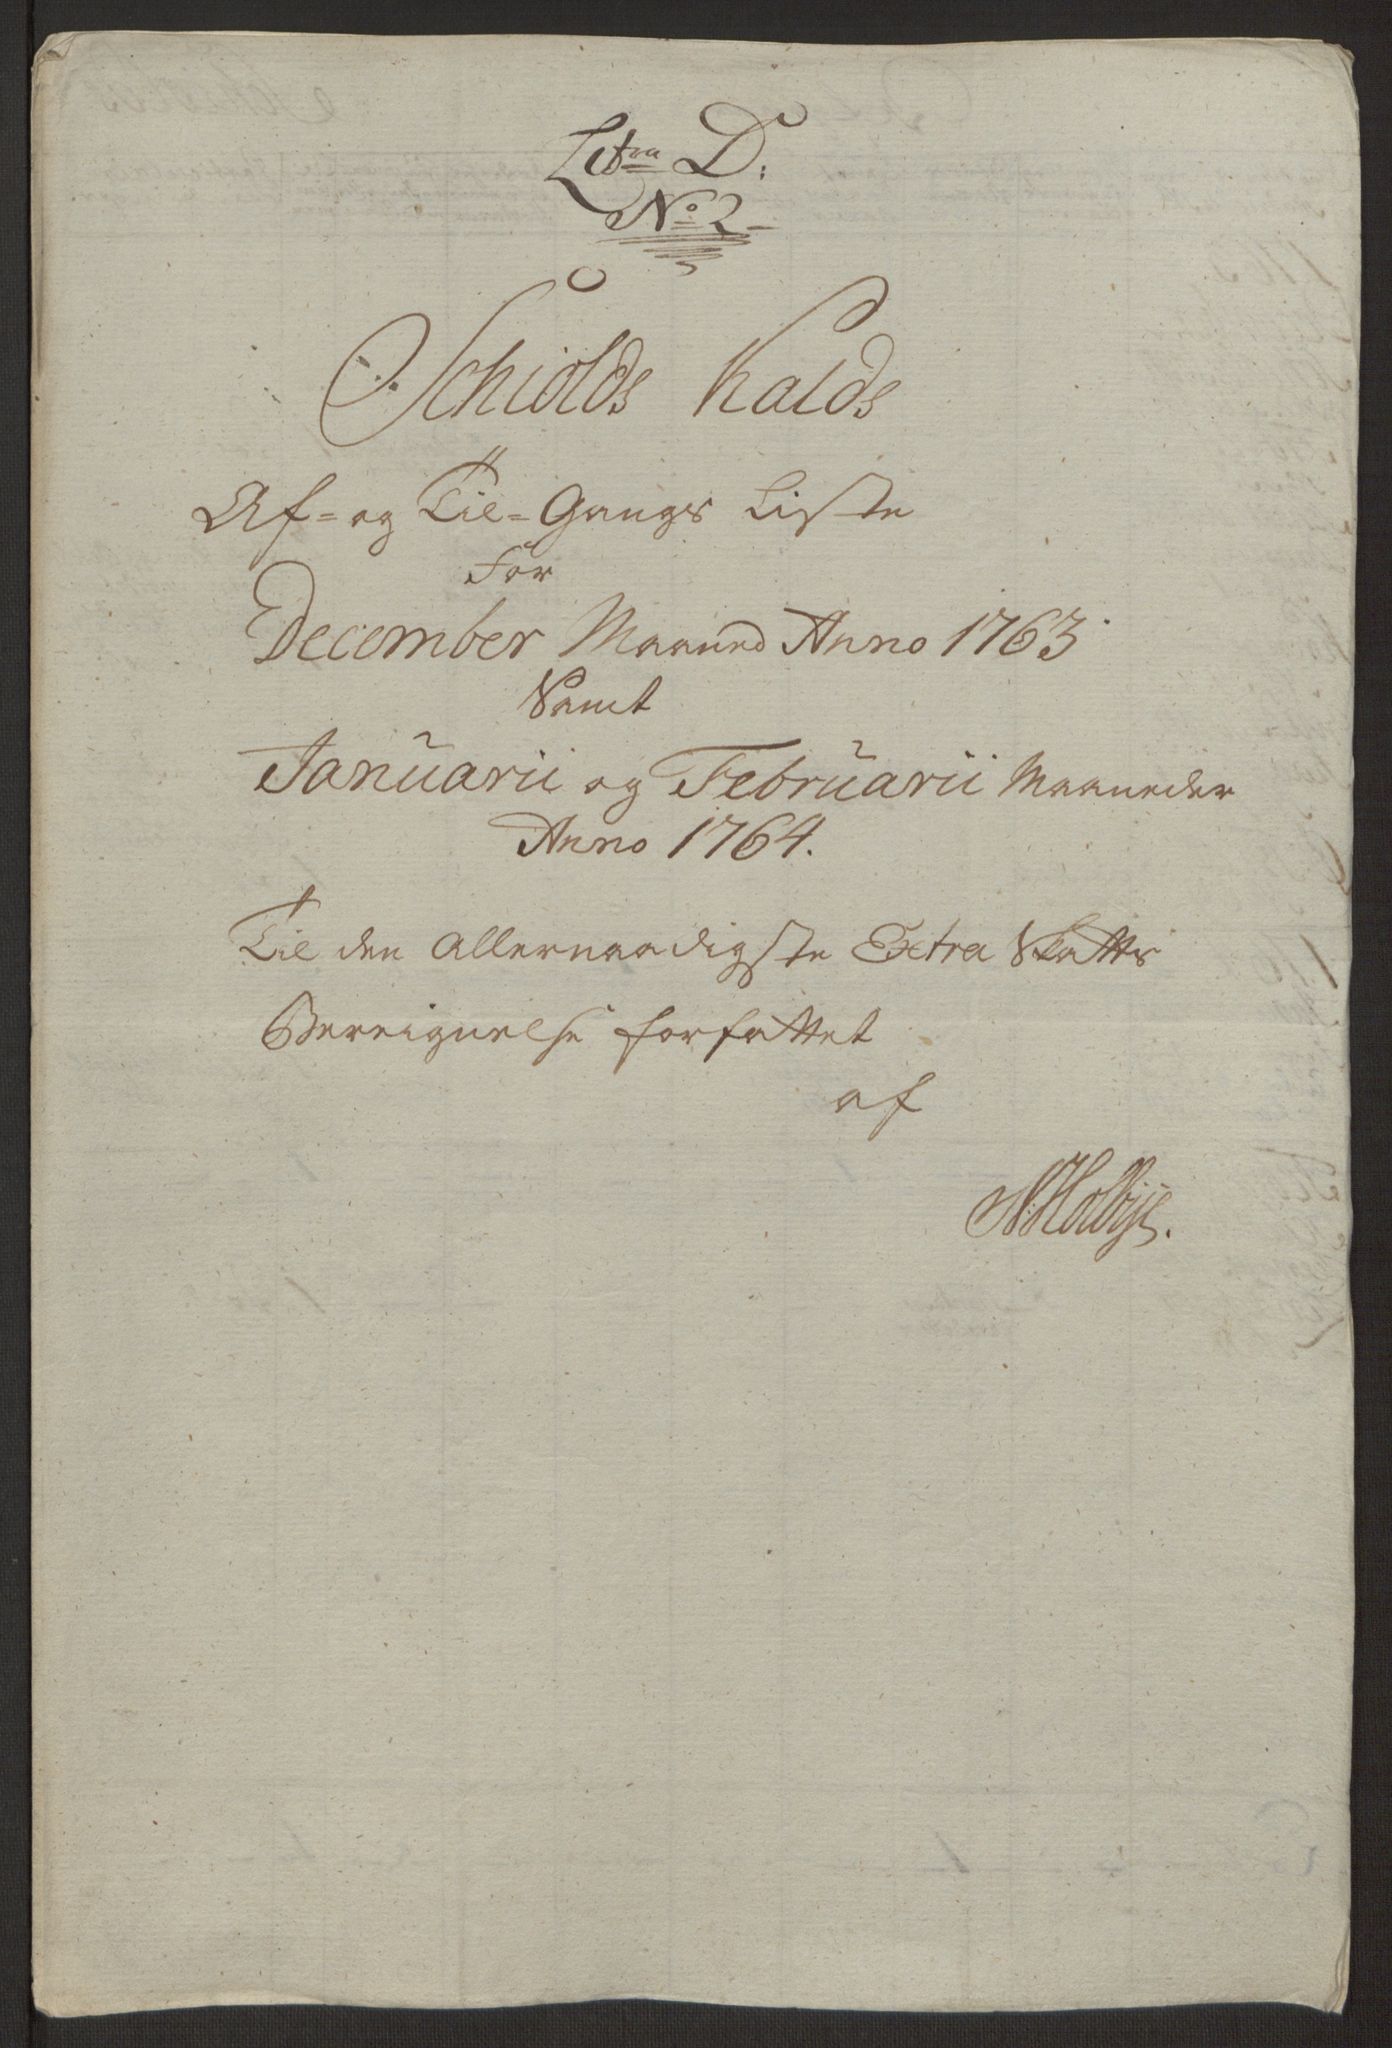 Litra D:
No 2
Schiolds Kalds
Af- og Til-Gangs Liste
For
December Maaned Anno 1763
Samt
Januarii og Februarii Maaneder
Anno 1764.
Til den Allernaadigste Extra Skatts
Bereignelse forfattet
af